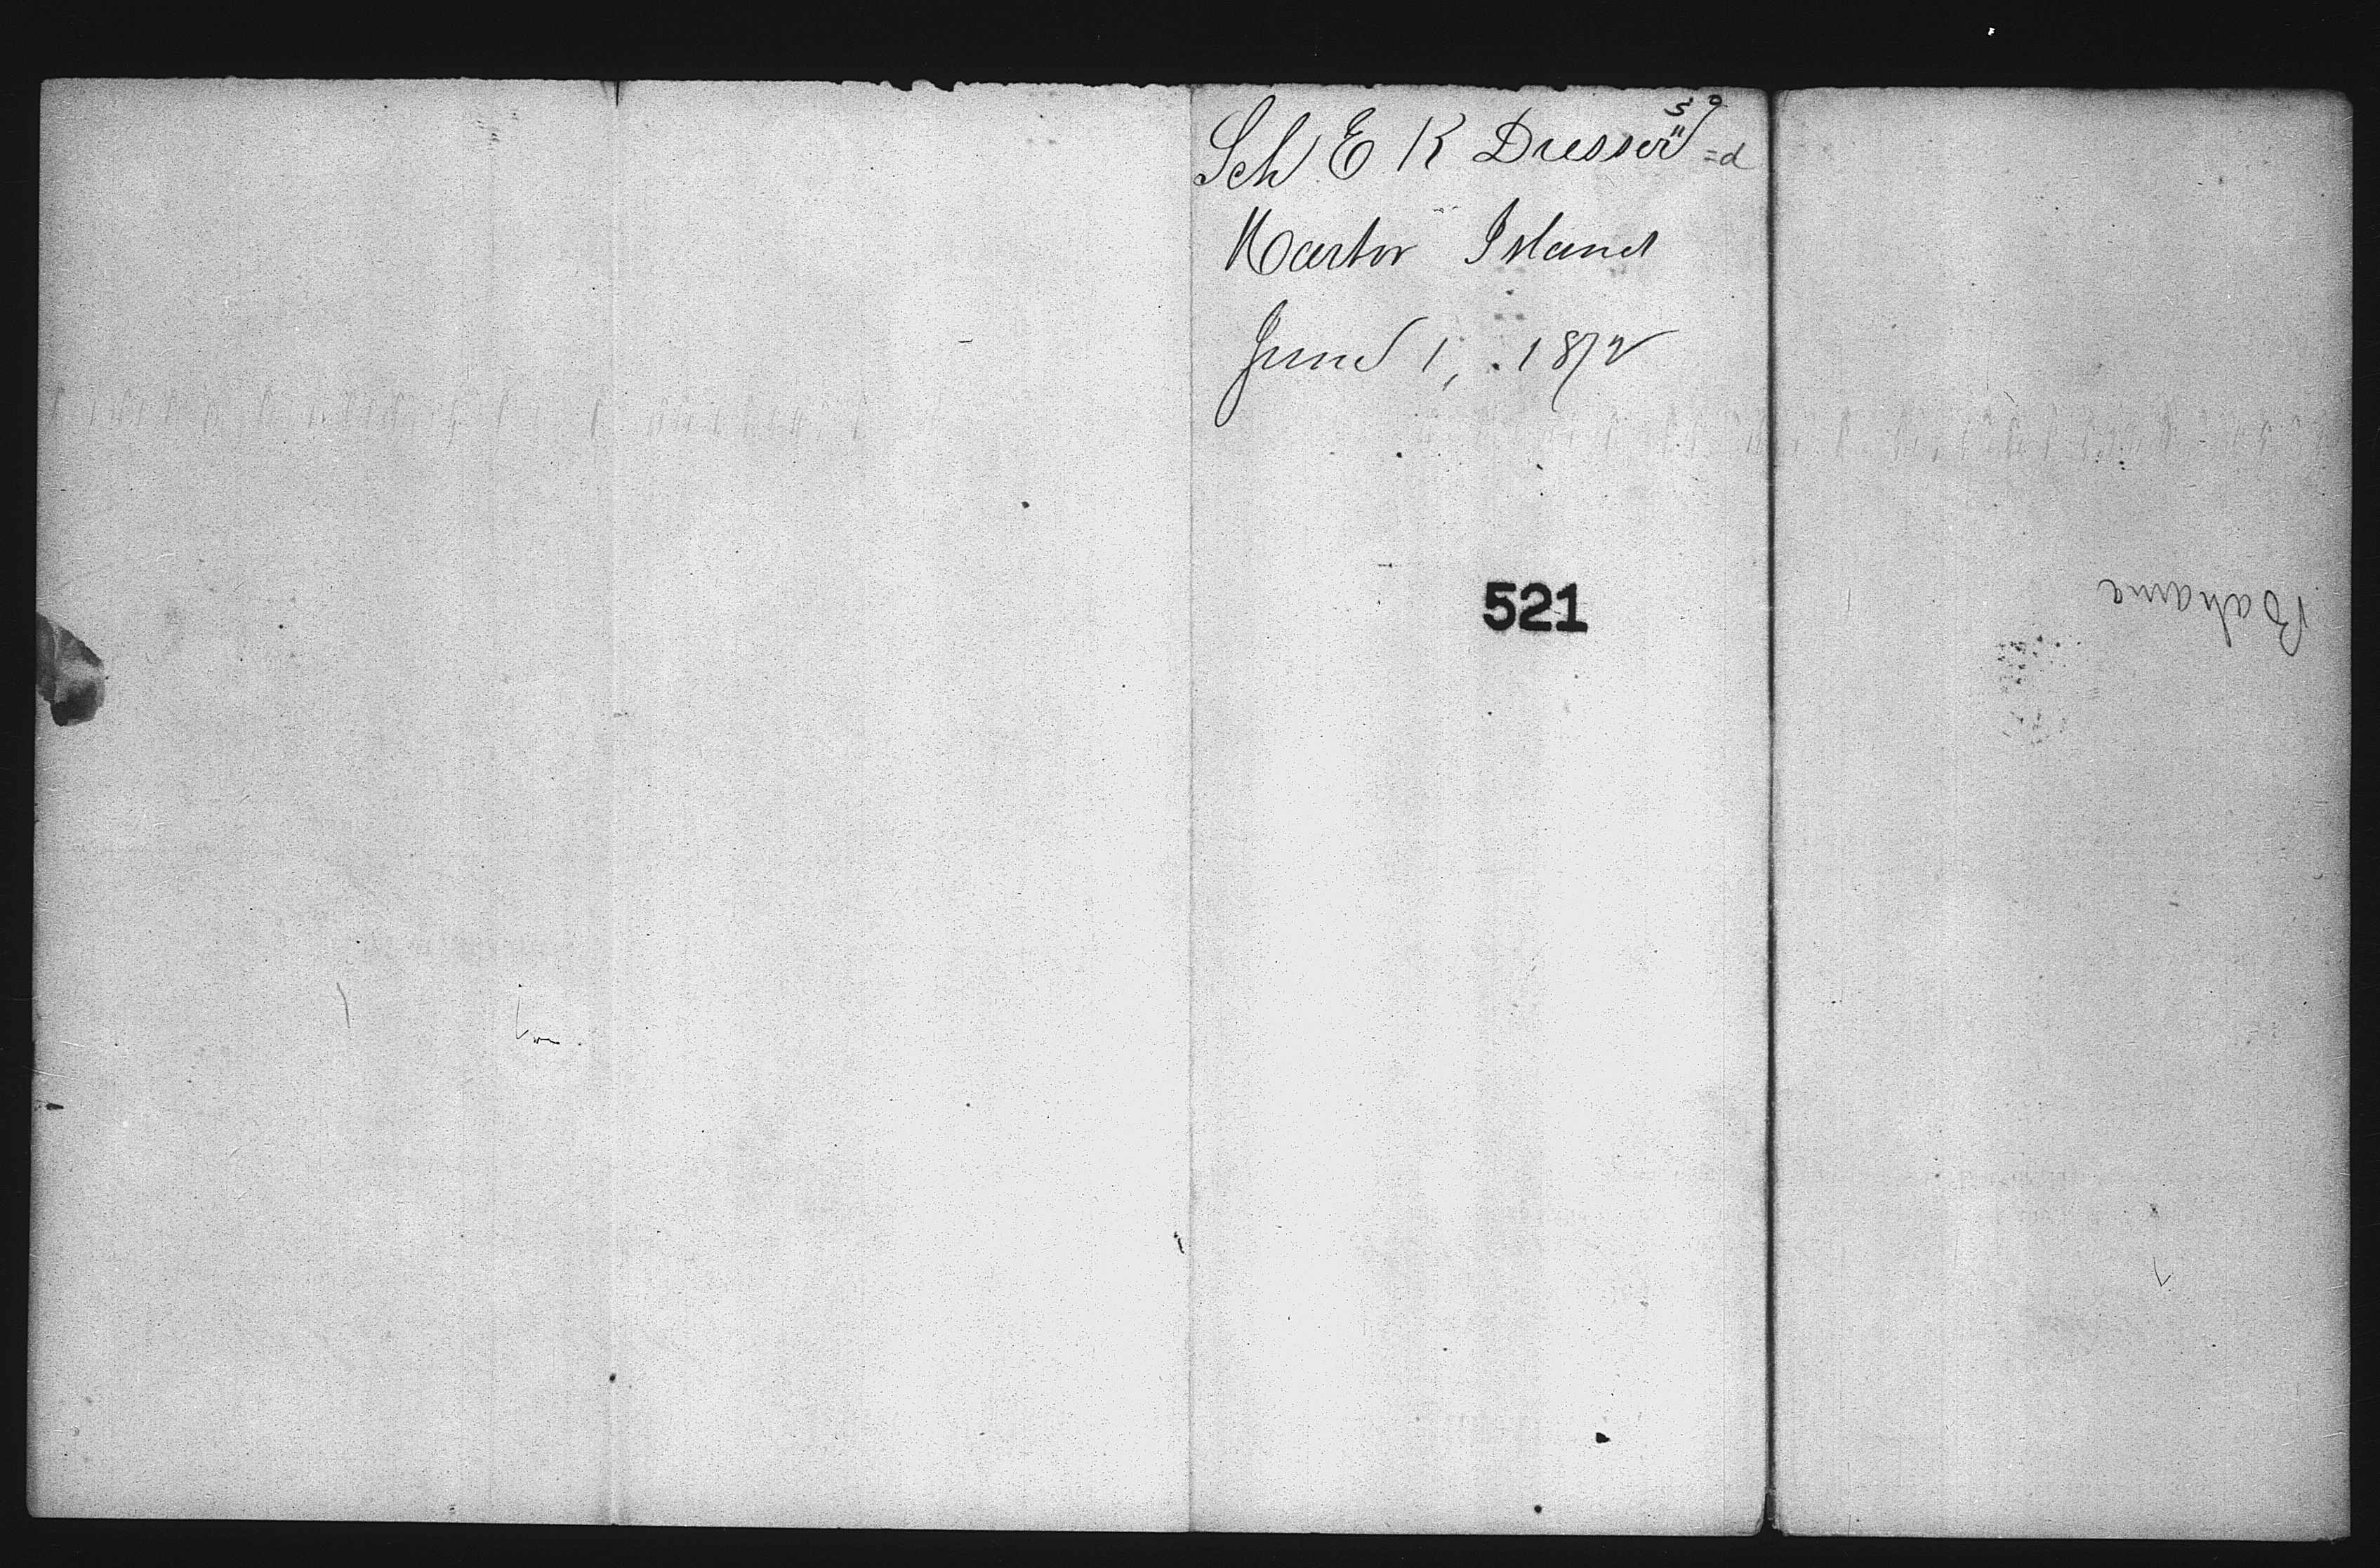 Sch E K Dresser
Harbor Island
June 1, 1872
521
Bahama